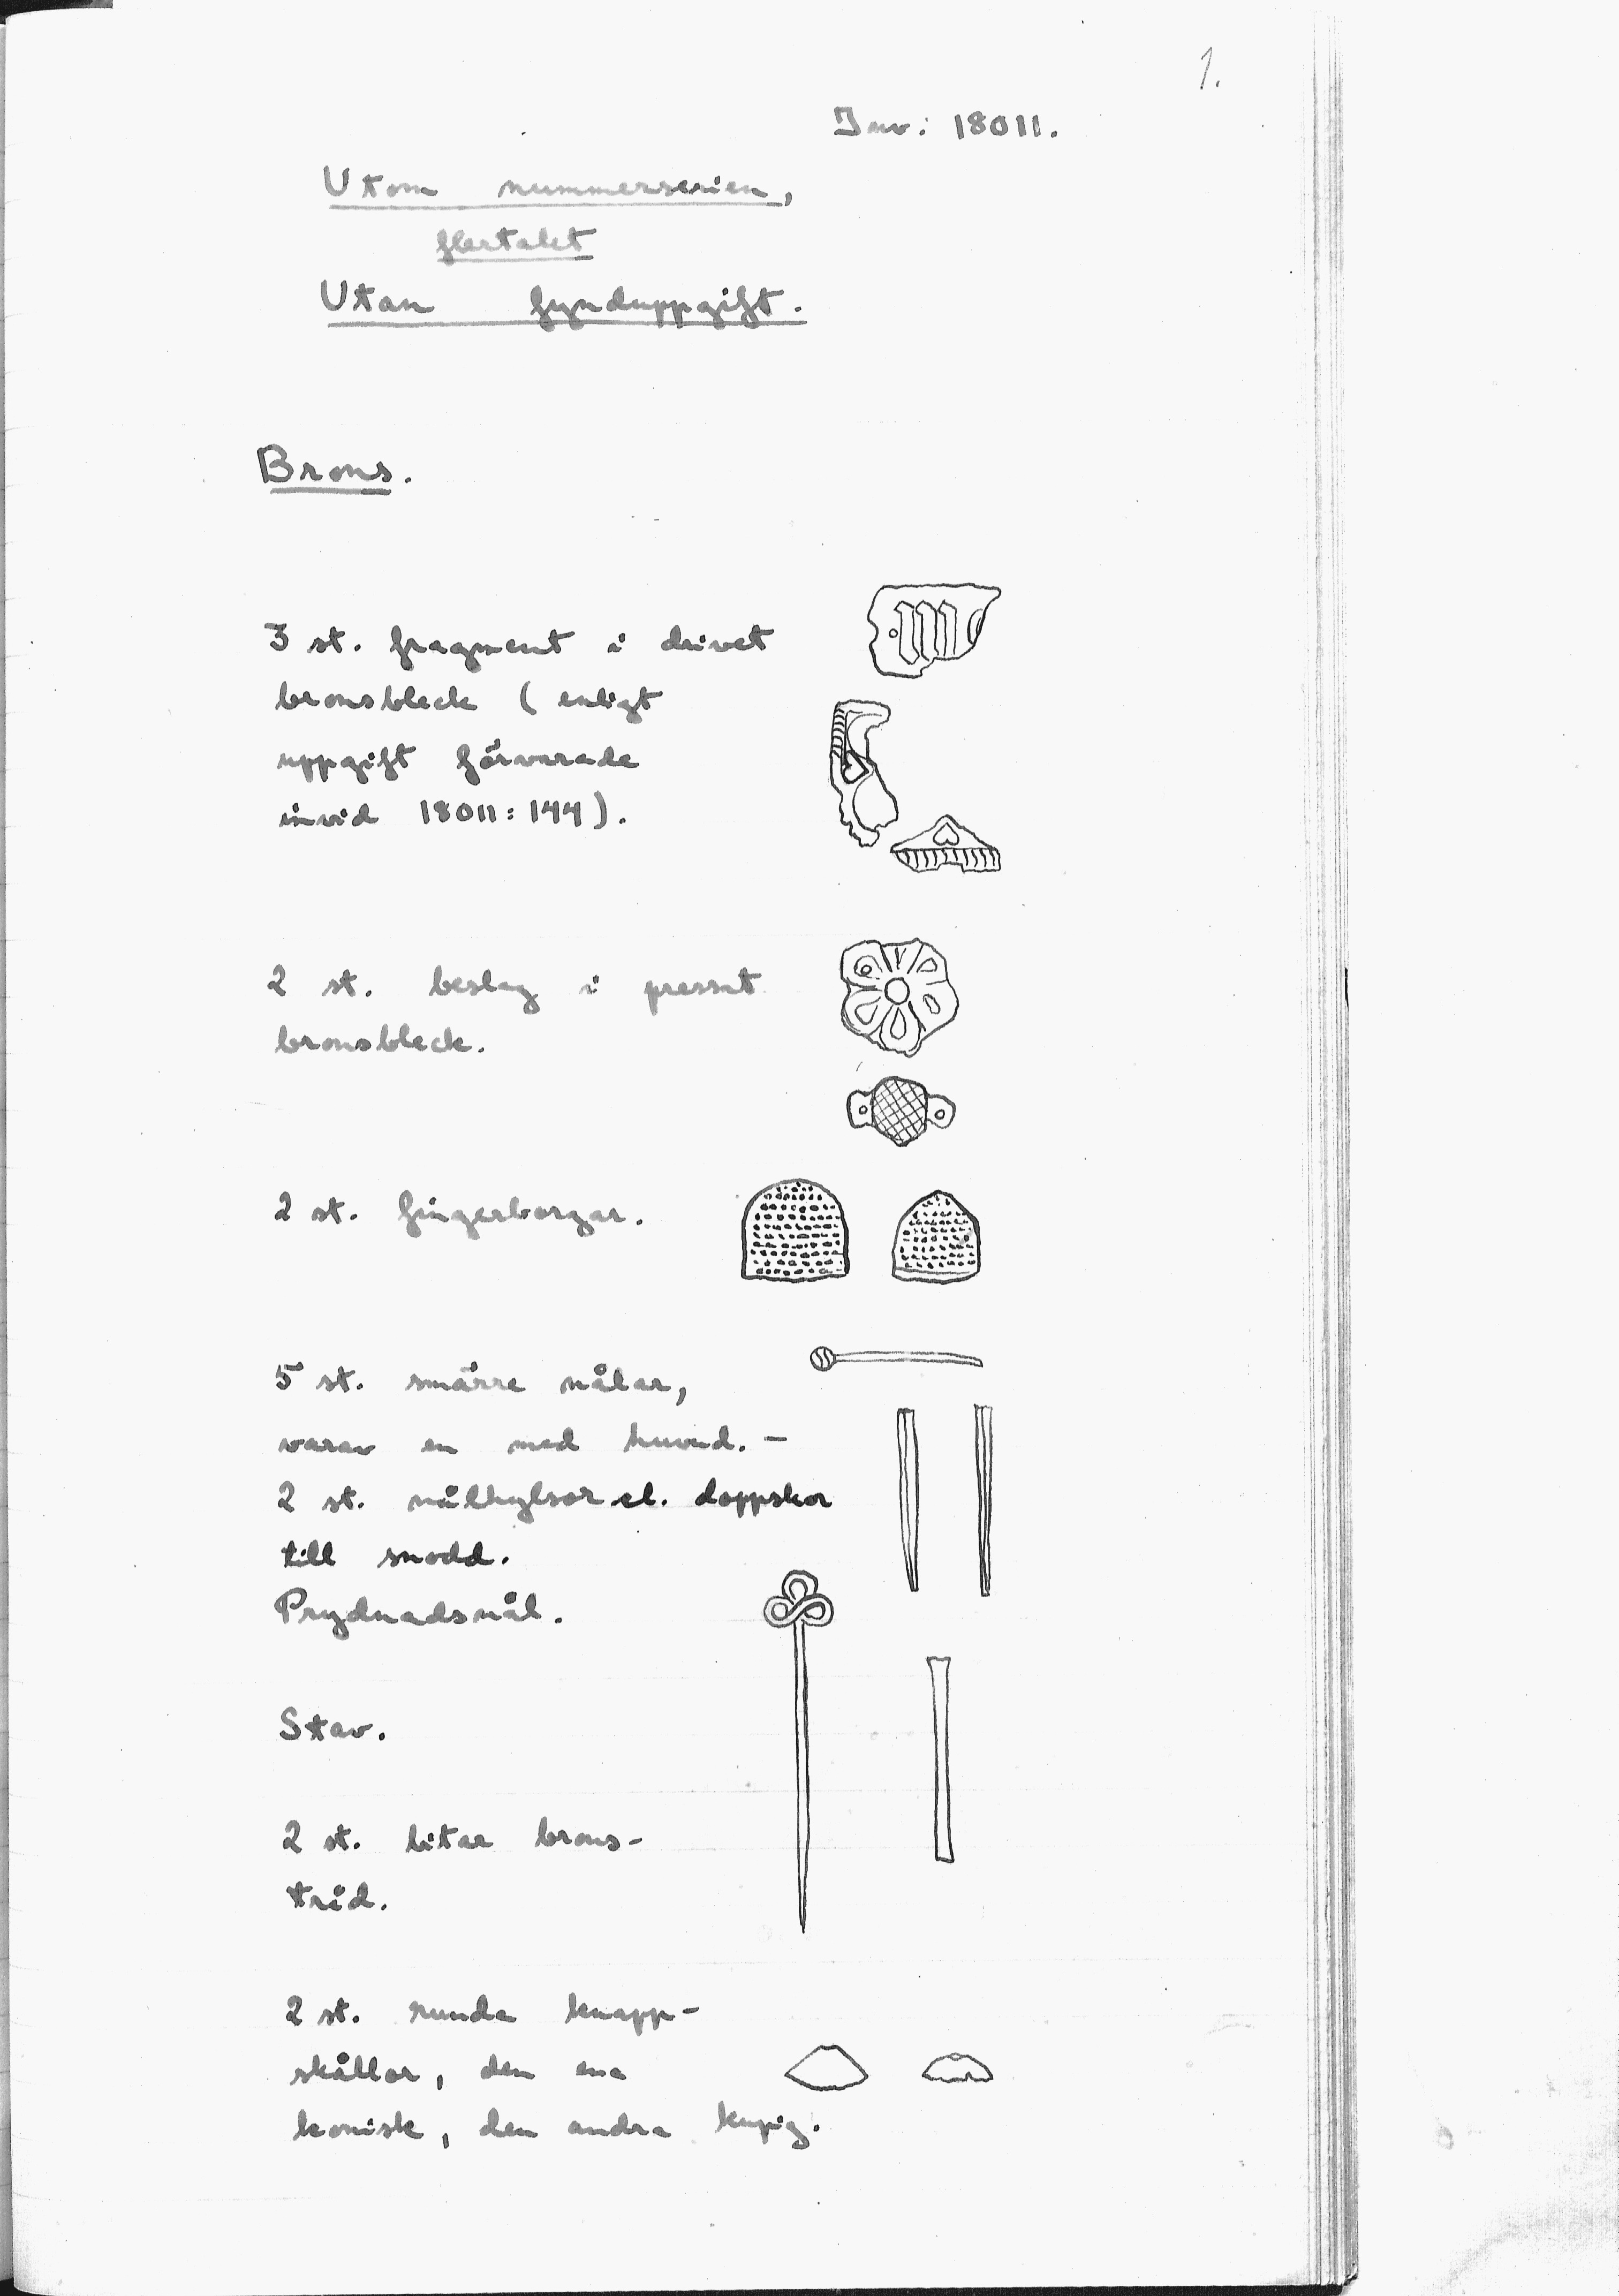 1.
Inv: 18011.
Utom nummerserien,
flertalet
Utan fynduppgift.
Brons.
3 st. fragment i drivet
bronsbleck (enligt
uppgift förvarade
invid 18011:144).
2 st. beslag i pressat
bronsbleck.
2 st. fingerborgar.
5 st. smärre nålar,
varav en med huvud. –
2 st. nålhylsor el. doppskor
till snodd.
Prydnadsnål.
Stav.
2 st. bitar brons-
tråd.
2 st. runda knapp-
skållor, den ena
konisk, den andra kupig.